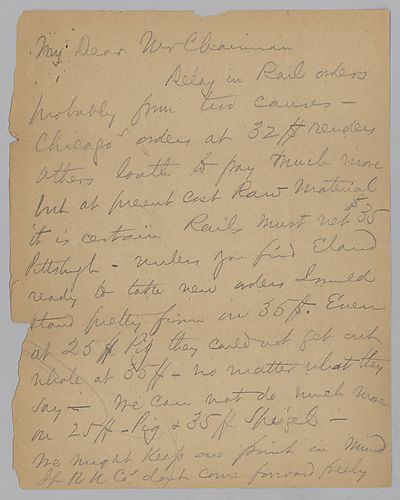 My Dear Mr Chairman
Delay in Rail orders
probably from two causes —
Chicago's orders at 32$ renders
others loath to pay much more
but at present cost Raw Material
it is certain Rails must net $35
Pittsbgh - unless you find Eland
ready to take new orders I would
stand pretty firm on 35$. Even
at 25$ Pig they could not get out
whole at 35$ - no matter what they
say — We can not do much more
on 25$ - Pig & 35$ Spiegel —
We might keep one point in mind
If R R Cos dont come forward freely